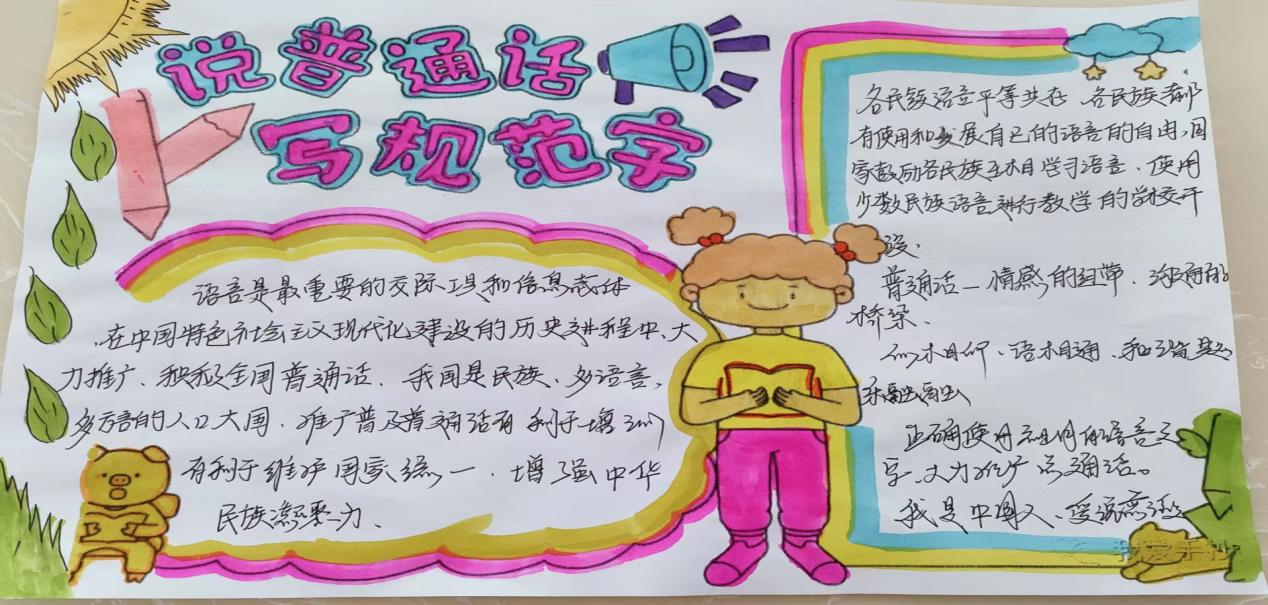 说普通话
写规范字
语言是最重要的交际工具和信息载体
在中国特色社会主义现代化建设的历史进程中、大
力推广、积极全国普通话、我国是民族、多语言，
多方言的人口大国、推广普及普通话有利于增
有利于维护国家统一、增强中华
民族凝聚力、
各民族语言平等共存、各民族都
有使用和发展自己的语言的自由，国
家鼓励各民族互相学习语言、使用
少数民族语言进行教学的学校开
设、
普通话—情感的纽带、沟通的
桥梁、
语相通、和谐
乐融融
正确使用祖国的语言文
字、大力推广普通话。
我是中国人、爱说普通话